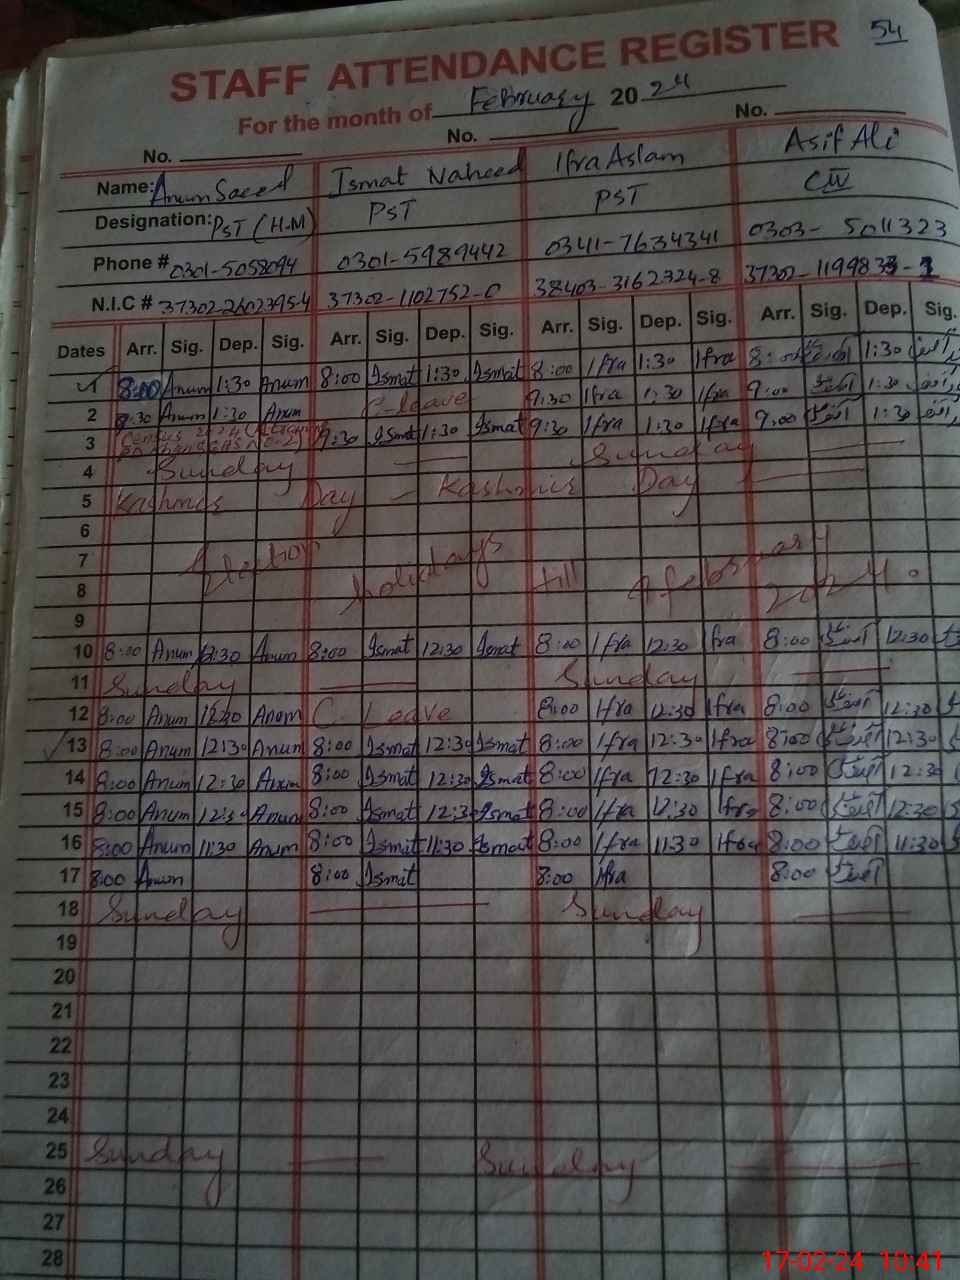 54
STAFF ATTENDANCE REGISTER
For the month of February 2024
No. No. No.
Name: Anum Saeed Ismat Naheed Ifra Aslam Asif Ali
Designation: PST (H.M) PST PST C IV
Phone # 0301-5058094 0301-5989442 0341-7634341 0303- 5011323
N.I.C # 37302-2602395-4 37302-1102752-0 38403-3162324-8 37302-1199833-1
Dates Arr. Sig. Dep. Sig. Arr. Sig. Dep. Sig. Arr. Sig. Dep. Sig. Arr. Sig. Dep. Sig.
8:00 Anum 1:30 Anum 8:00 Ismat 1:30 Ismat 8:00 Ifra 1:30 Ifra 8:00 آصف 1:30 آصف
2 8:30 Anum 1:30 Anum C-leave 9:30 Ifra 1:30 Ifra 9:00 آصف 1:30 آصف
3 Census 9:30 Ismat 1:30 Ismat 9:30 Ifra 1:30 Ifra 9:00 آصف 1:30 آصف
4 Sunday Sunday
5 Kashmir Day - Kashmir Day
6
7 Election holidays till 9 february
8 2024.
9
10 8:00 Anum 12:30 Anum 8:00 Ismat 12:30 Ismat 8:00 Ifra 12:30 Ifra 8:00 آصف 12:30
11 Sunday Sunday
12 8:00 Anum 12:30 Anum C Leave 8:00 Ifra 12:30 Ifra 8:00 آصف 12:30
13 8:00 Anum 12:30 Anum 8:00 Ismat 12:30 Ismat 8:00 Ifra 12:30 Ifra 8:00 آصف 12:30
14 8:00 Anum 12:30 Anum 8:00 Ismat 12:30 Ismat 8:00 Ifra 12:30 Ifra 8:00 آصف 12:30
15 8:00 Anum 12:30 Anum 8:00 Ismat 12:30 Ismat 8:00 Ifra 12:30 Ifra 8:00 آصف 12:30
16 8:00 Anum 11:30 Anum 8:00 Ismat 11:30 Ismat 8:00 Ifra 11:30 Ifra 8:00 آصف 11:30
17 8:00 Anum 8:00 Ismat 8:00 Ifra 8:00 آصف
18 Sunday Sunday
19
20
21
22
23
24
25 Sunday Sunday
26
27
28
17-02-24 10:41